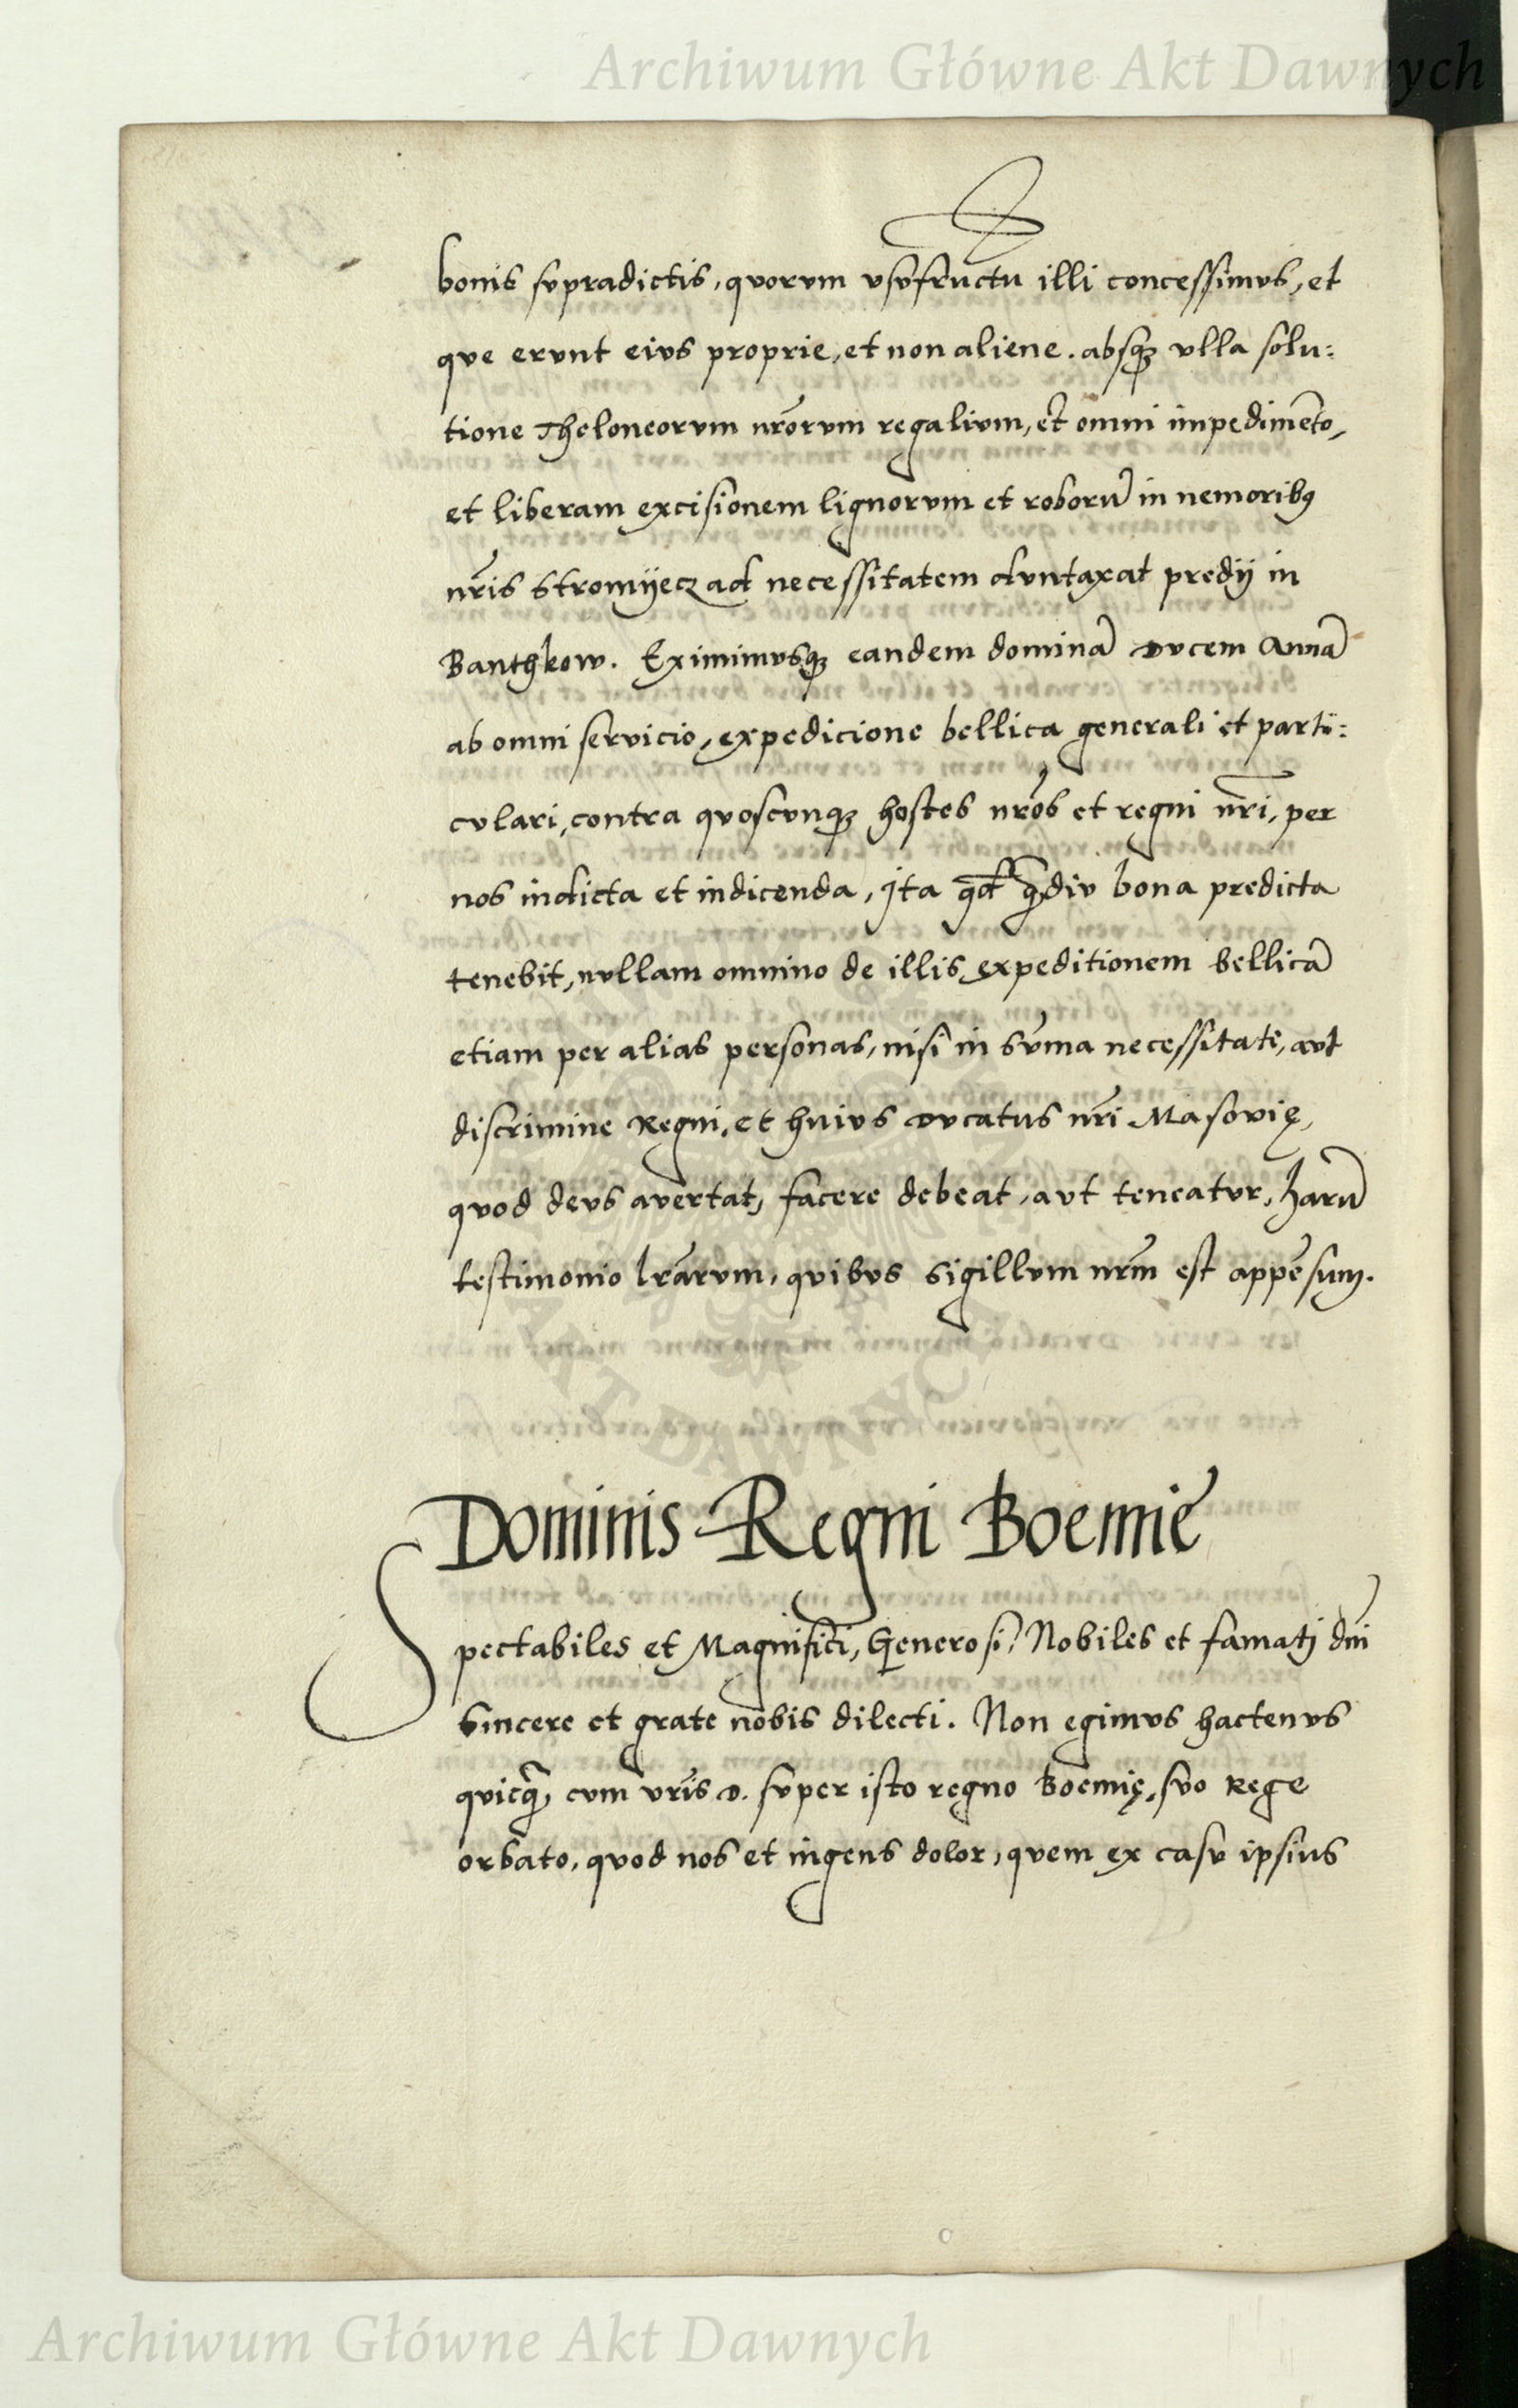 Archiwum Główne Akt Dawnych
bonis svpradictis, qvorvm vsvfructu illi concessimvs, et
qve ervnt eivs proprie, et non aliene. absqꝫ vlla solu:
tione Theloneorvm nr̃orvm regalivm, et omni impedimẽto,
et liberam excisionem lignorvm et roborũ in nemoribꝰ
nr̃is Stromÿecz ad necessitatem dvntaxat predÿ in
Banthkow. Eximimvsqꝫ eandem dominã Dvcem Annã
ab omni servicio, expedicione bellica generali et parti:
cvlari, contra qvoscvnqꝫ hostes nr̃os et regni nr̃i, per
nos indicta et indicenda, Ita qd̃ q̃div bona predicta
tenebit, nvllam omnino de illis expeditionem bellicã
etiam per alias personas, nisi in sṽma necessitate, avt
discrimine Regni, et huivs Dvcatus nr̃i Masovię,
qvod devs avertat, facere debeat, avt teneatvr, harũ
testimonio lr̃arvm, qvibvs sigillvm nr̃m est appẽsum.
AKT DAWNYCH
Dominis Regni Boemie
Spectabiles et Magnifici, Generosi, Nobiles et famati dñi
sincere et grate nobis dilecti. Non egimvs hactenvs
qvicq̃ cvm vr̃is D. svper isto regno Boemię, svo Rege
orbato, qvod nos et ingens dolor, qvem ex casv ipsius
Archiwum Główne Akt Dawnych